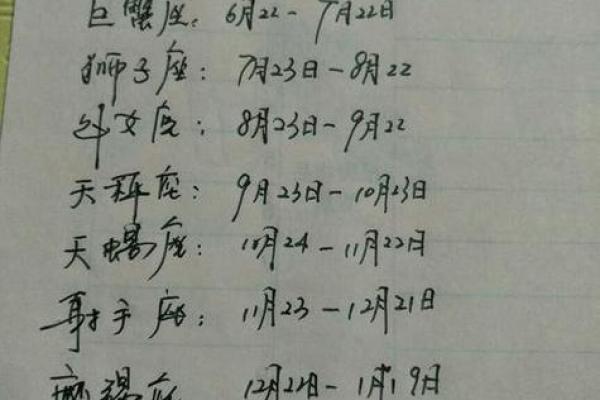 巨蟹座: 6月22-7月22日
狮子座: 7月23日-8月22
处女座: 8月23日-9月22
天秤座: 9月23日-10月23日
天蝎座: 10月24-11月22日
射手座: 11月23-12月21日
座 12月22日-1月19日